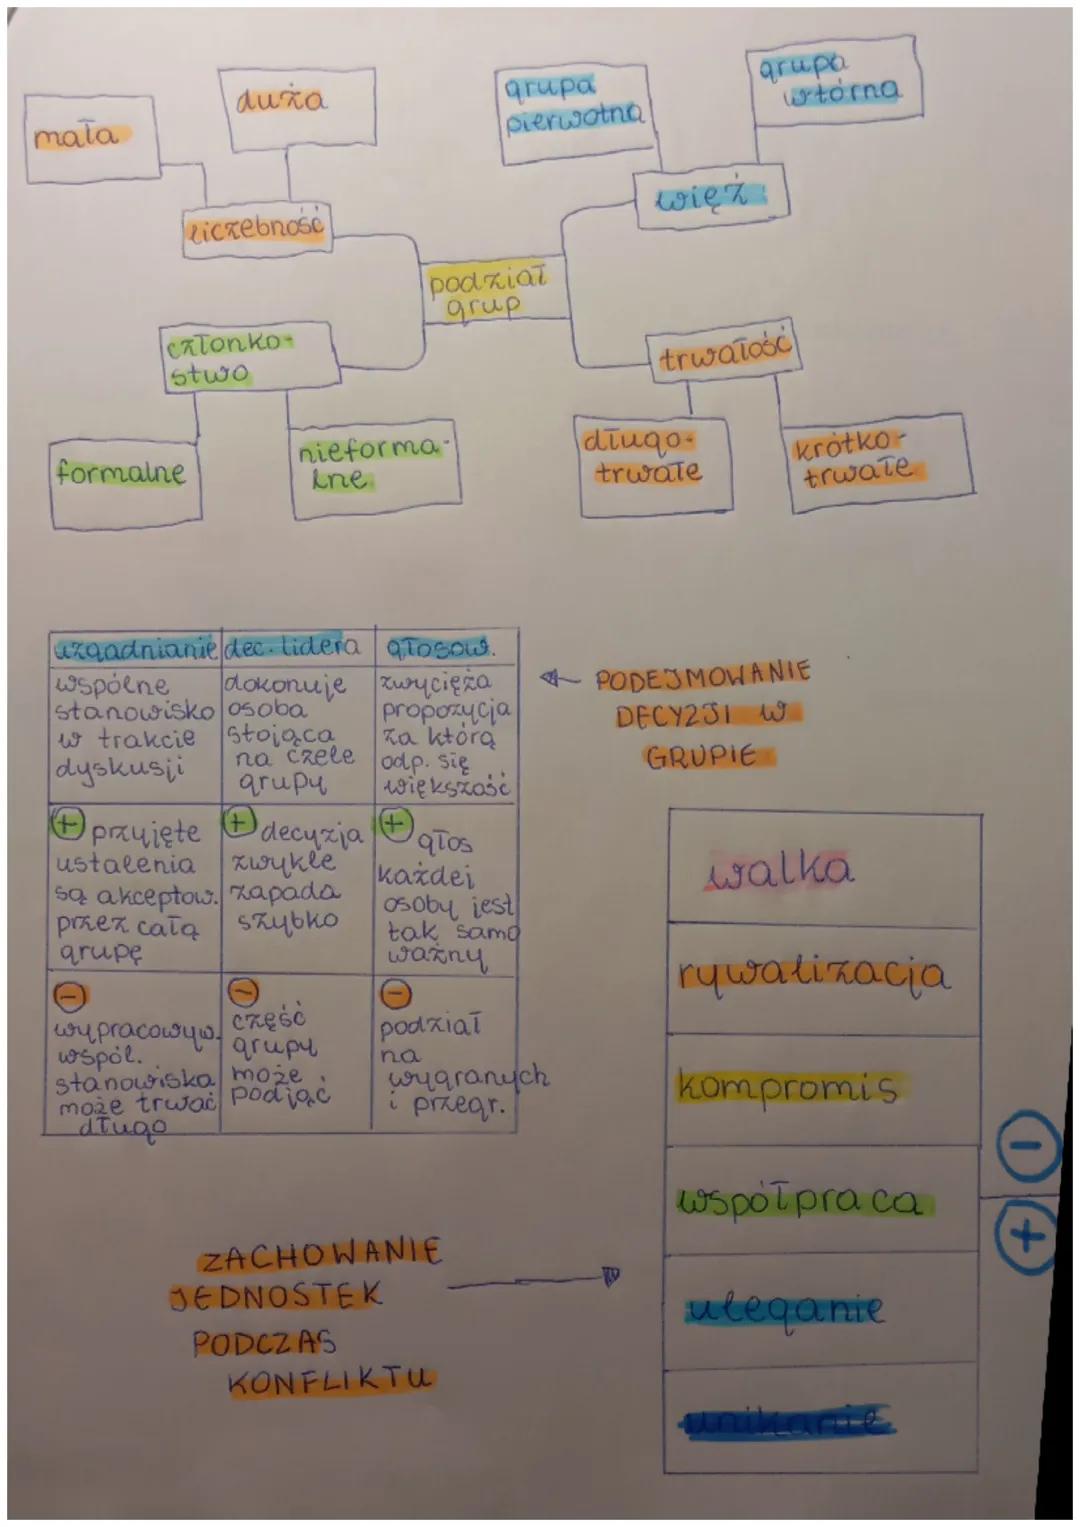 mała
duża
liczebność
grupa
pierwotna
grupa
wtórna
więź
podział
grup
członko-
stwo
formalne
nieforma-
lne
trwałość
długo-
trwałe
krótko-
trwałe
uzgadnianie
dec. lidera
głosow.
wspólne
stanowisko
w trakcie
dyskusji
dokonuje
osoba
stojąca
na czele
grupy
zwycięża
propozycja
za którą
odp. się
większość
+ przyjęte
ustalenia
są akceptow.
przez całą
grupę
+ decyzja
zwykle
zapada
szybko
+ głos
każdej
osoby jest
tak samo
ważny
-
wypracowyw.
wspól.
stanowiska
może trwać
długo
-
część
grupy
może
podjąć
-
podział
na
wygranych
i przegr.
PODEJMOWANIE
DECYZJI W
GRUPIE
ZACHOWANIE
JEDNOSTEK
PODCZAS
KONFLIKTU
walka
rywalizacja
kompromis
współpraca
uleganie
unikanie
-
+